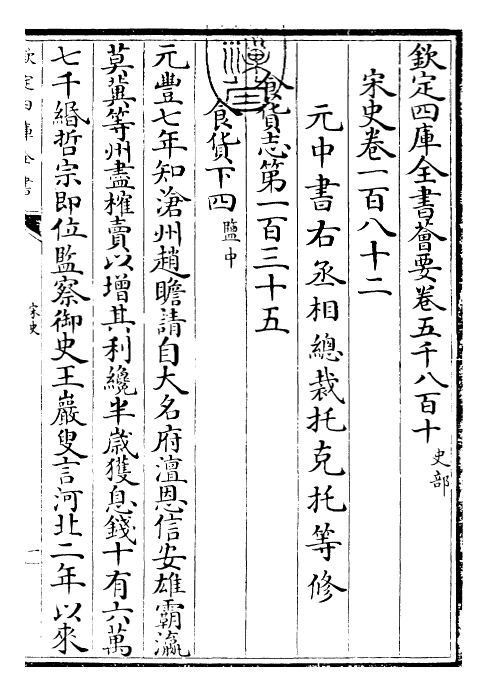 欽定四庫全書薈要卷五千八百十 史部
宋史卷一百八十二
元中書右丞相總裁托克托等修
食貨志第一百三十五
食貨下四 鹽中
元豐七年知滄州趙瞻請自大名府澶恩信安雄霸瀛
莫冀等州盡榷賣以增其利纔半歳獲息錢十有六萬
七千緡哲宗即位監察御史王巖叟言河北二年以來
欽定四庫全書
宋史
一